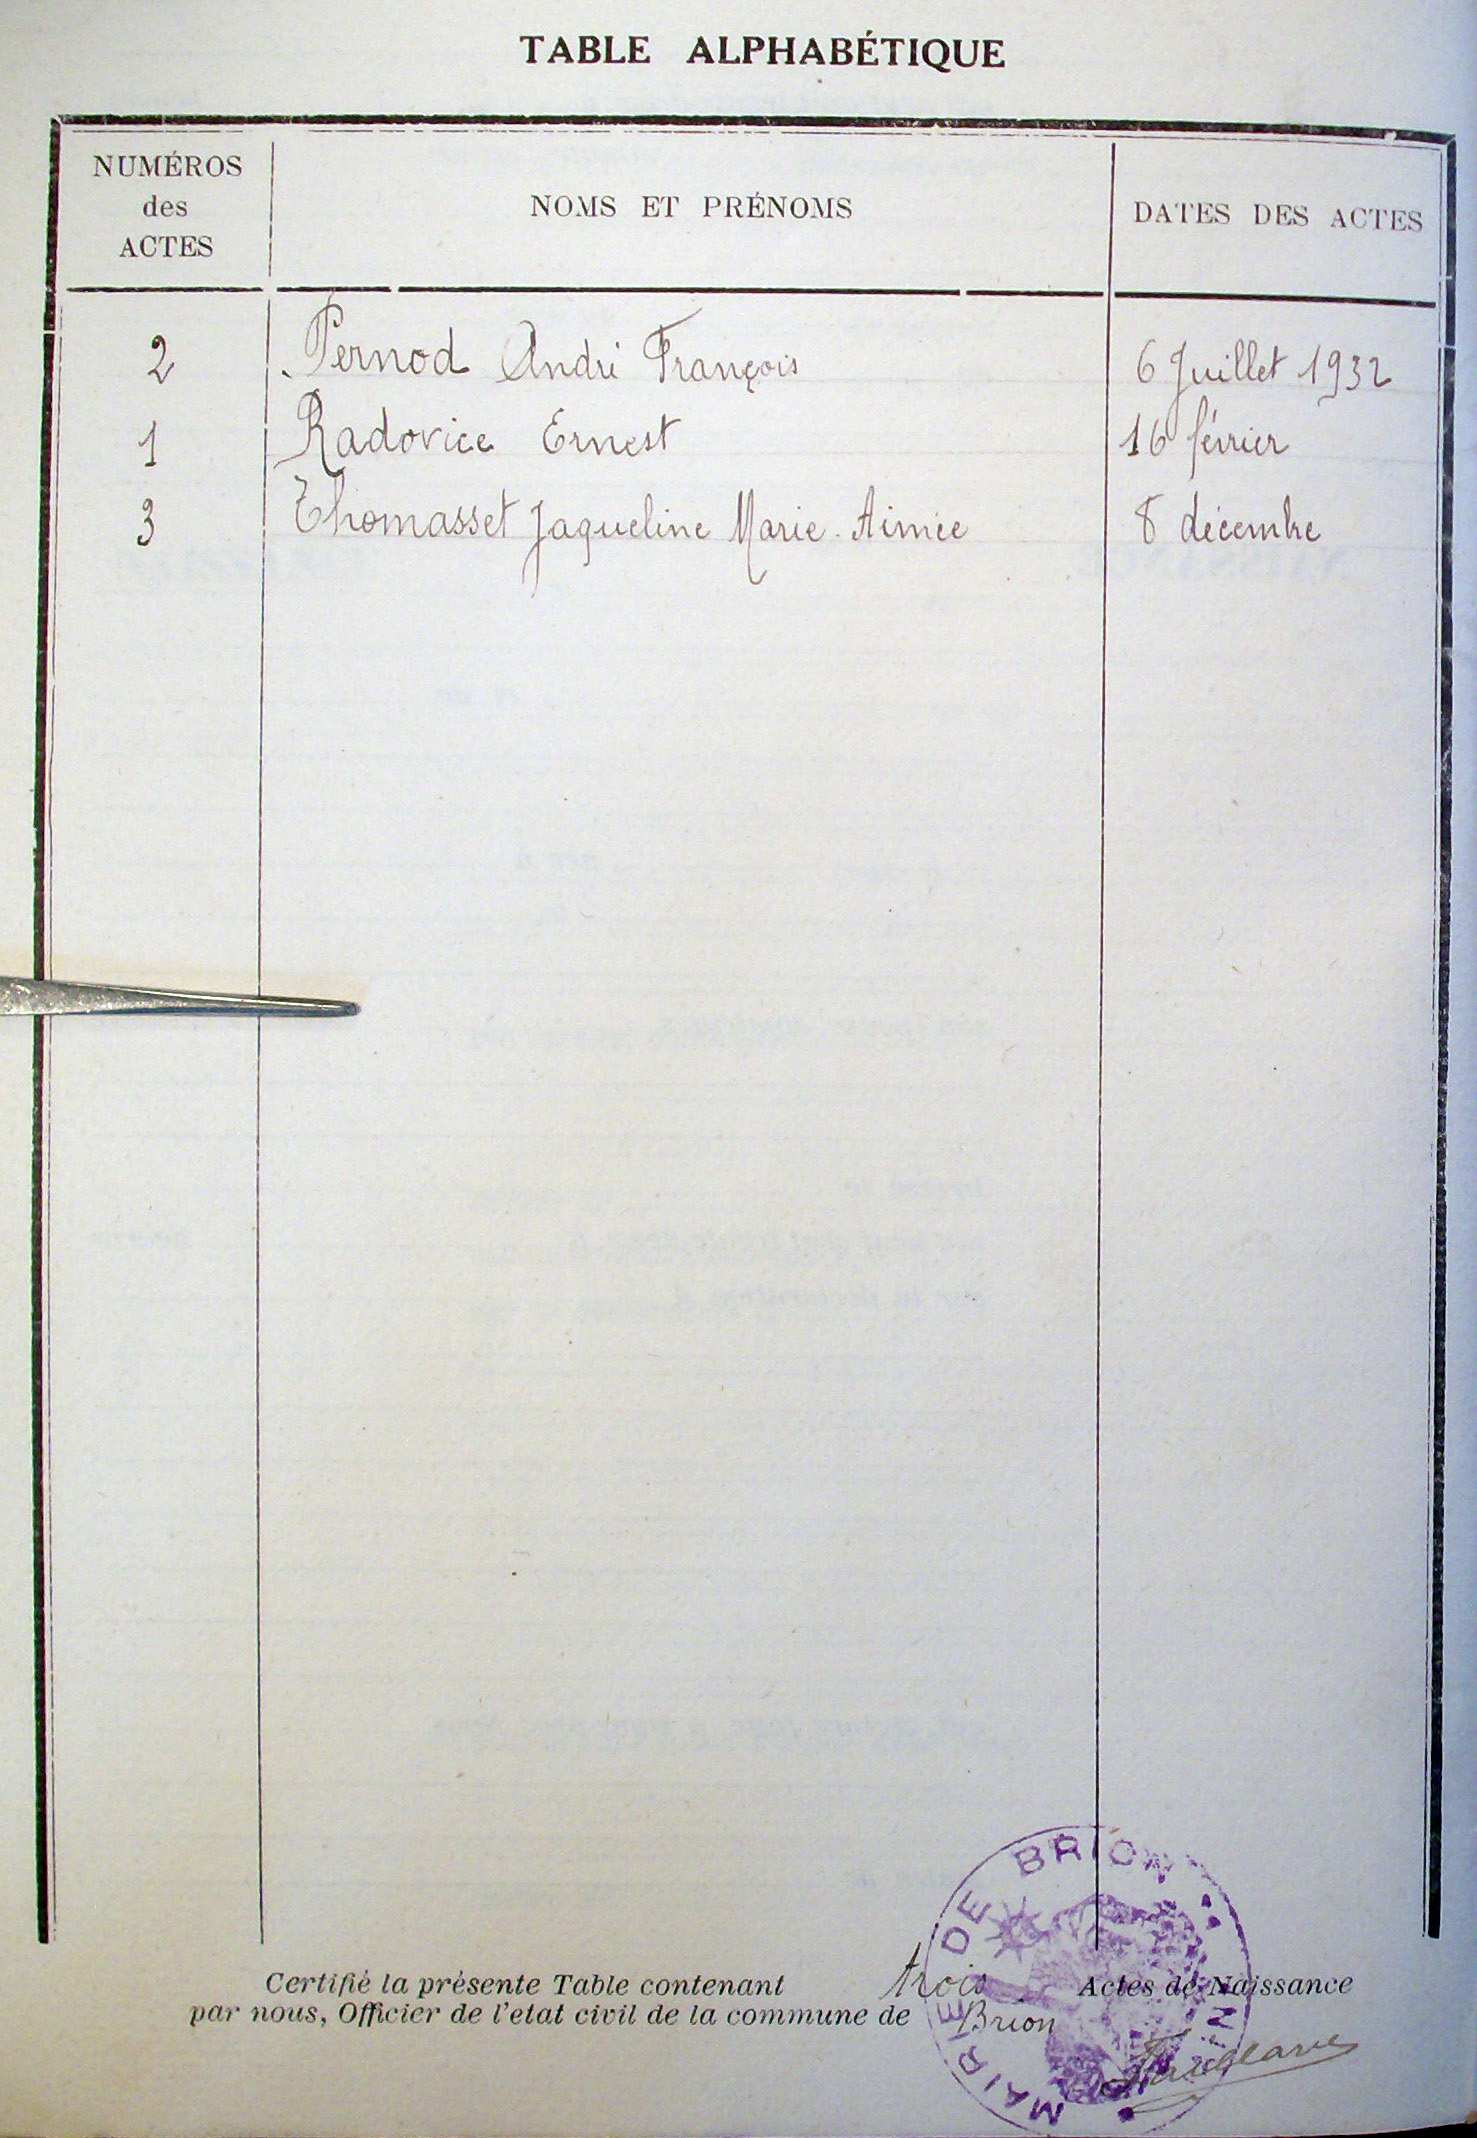 TABLE ALPHABÉTIQUE
NUMÉROS
des
ACTES
NOMS ET PRÉNOMS
DATES DES ACTES
2 Pernod André François 6 Juillet 1932
1 Radovice Ernest 16 février
3 Thomasset Jaqueline Marie Aimée 8 décembre
Certifié la présente Table contenant trois Actes de Naissance
par nous, Officier de l'etat civil de la commune de Brion
MAIRIE DE BRION